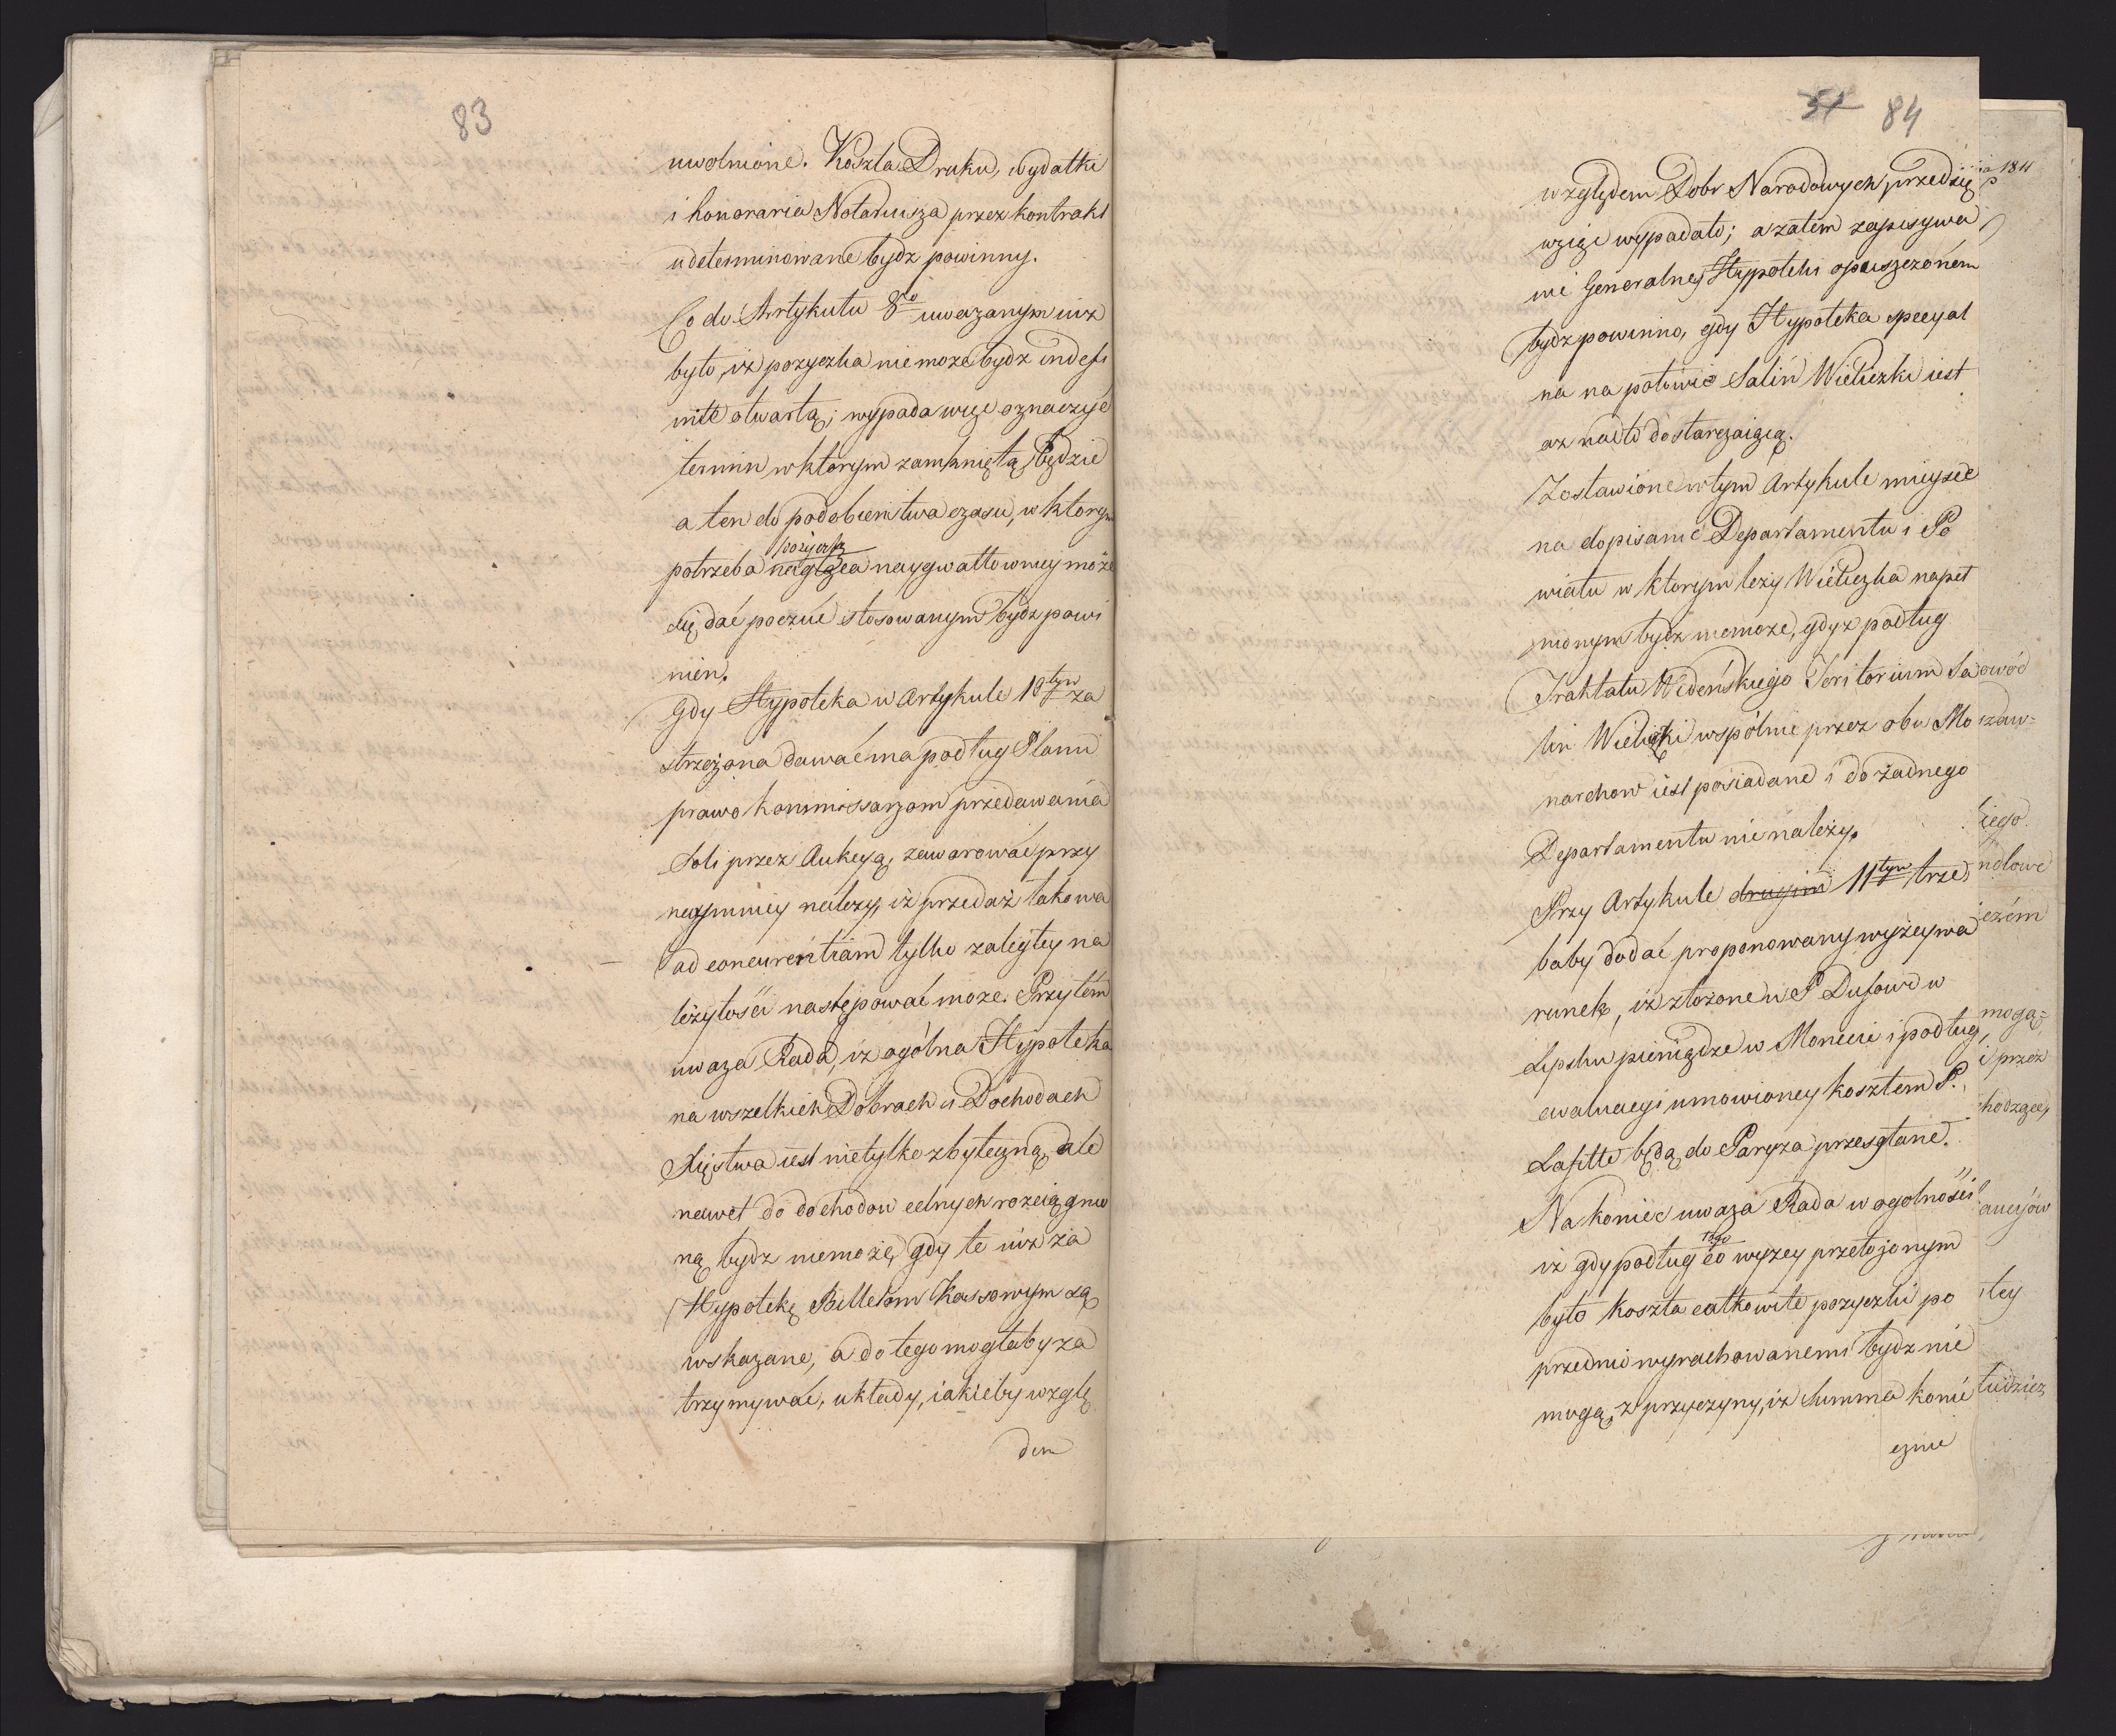 83
uwolnione. Koszta Druku, wydatki
i honoraria Notariusza przez kontrakt
udeterminowane bydz powinny.
Co do Artykułu 8go uwazanym iuz
było, iz pozyczka nie może bydz indefi
nite otwartą; wypada więc oznaczyć
termin w ktorym zamkniętą będzie
a ten do podobienstwa czasu, w ktorym
pożyczki
potrzeba nagląca naygwałtowniey może
się dać poczuć stosowanym bydz powi
nien.
Gdy Hypoteka w Artykule 10tym za
strzeżona dawać ma podług Planu
prawo kommissarzom przedawania
Soli przez Aukcyą, zawarować przy
naymniey należy, iż przedaż takowa
ad concurentiam tylko zaległey na
leżytości następować może. Przytém
uwaza Rada, iz ogólna Hypoteka
na wszelkich Dobrach i Dochodach
Xięstwa iest nietylko zbyteczną, ale
nawet do dochodow celnych rozciągnio
ną bydz niemoże, gdy te iuz za
Hypotekę Billetom Kassowym są
wskazane, a do tego mogłaby za
trzymywać, układy, iakieby wzglę
dem
51 84
względem Dobr Narodowych przedsię
wziąć wypadało; a zatem zapisywa
nie Generalney Hypoteki opuszczoném
bydz powinno, gdy Hypoteka specyal
na na połowie Salin Wieliczki iest
az nadto dostarczaiącą.
Zostawione w tym Artykule mieysce
na dopisanie Departamentu i Po
wiatu w ktorym leży Wieliczka napeł
nionym bydz niemoże, gdyz podług
Traktatu Wideńskiego Teritorium Sa
lin Wieliczki wspólnie przez obu Mo
narchow iest posiadane i do żadnego
Departamentu nie należy.
Przy Artykule drugim 11tym trze
baby dodać proponowany wyżey wa
runek, iż złożone u P Dufour w
Lipsku pieniądze w Monecie i podług
ewaluacyi umowioney kosztem P.
Lafitte będą do Paryza przesłane.
Nakoniec uwaza Rada w ogolności
iz gdy podług co wyzey przełożonym
było koszta całkowite pozyczki po
przednio wyrachowanemi bydz nie
mogą, z przyczyny, iz Summa konie
cznie
1811
owód
zaw=
iego
ndlowe
czém
moga=
i przez
hodzący
tey
tudziez